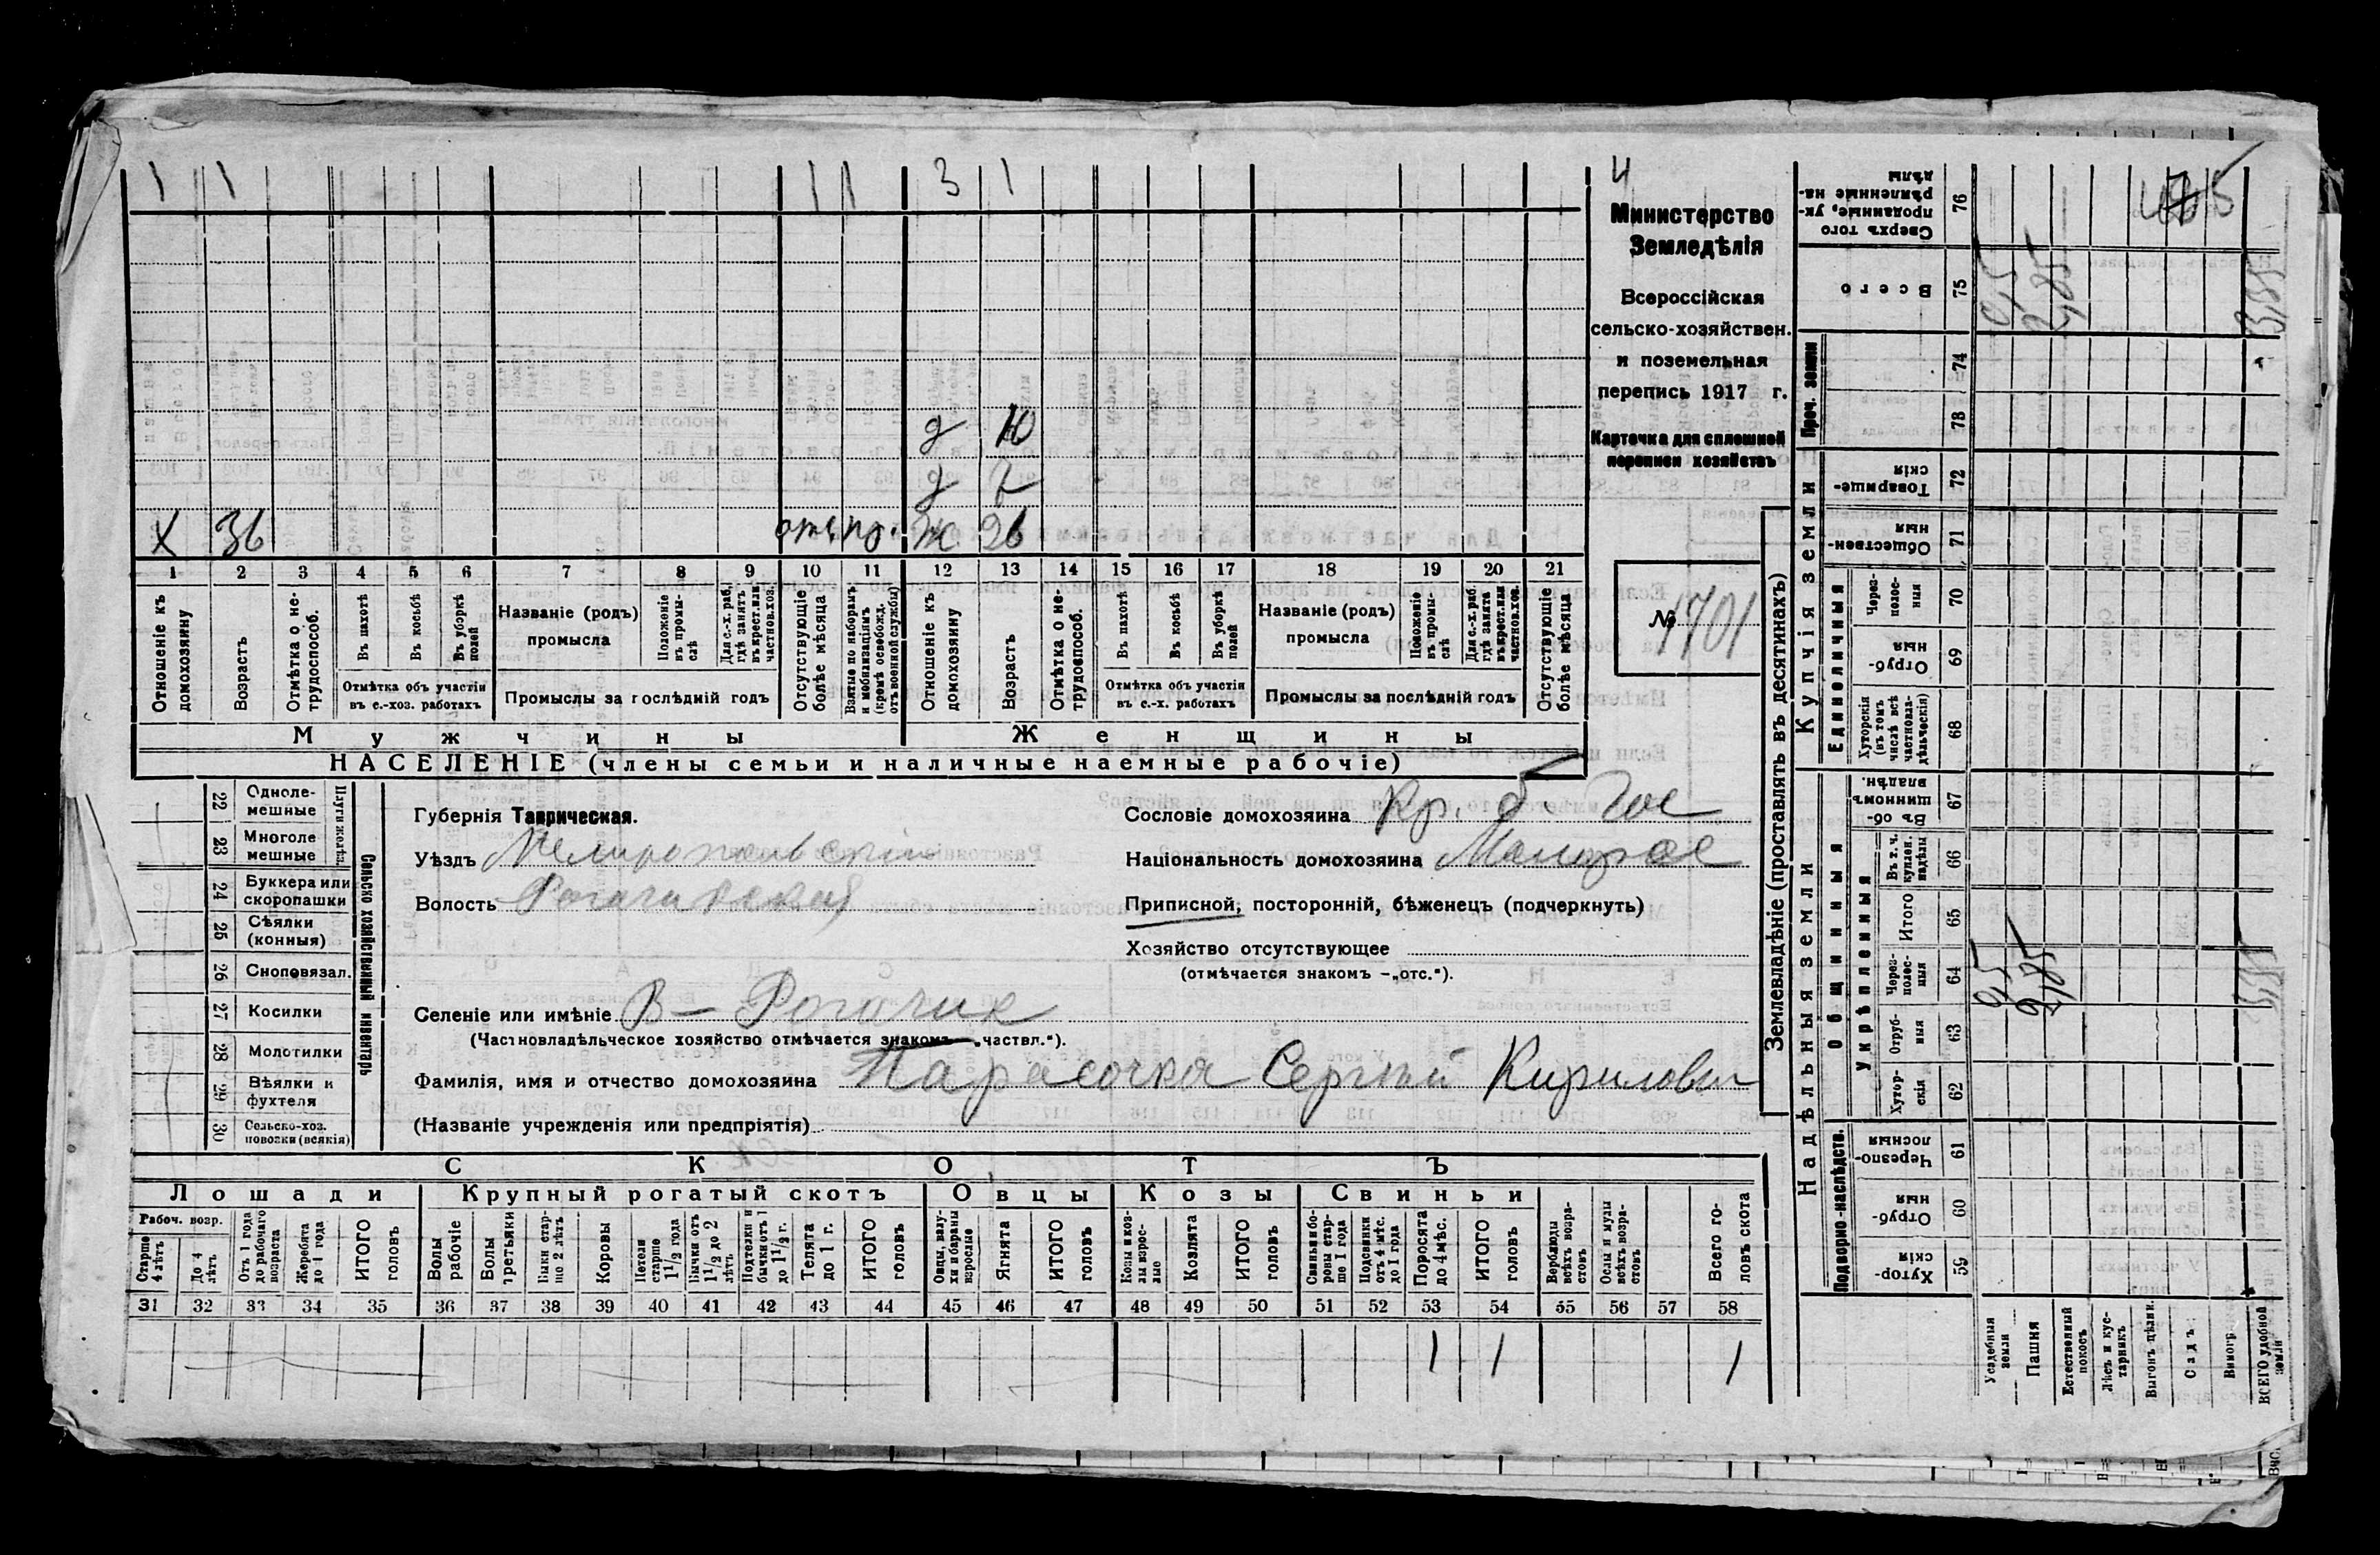 1 1 1 1 3 1 4
Министерство
Земледѣлія
Всероссійская
сельско-хозяйствен.
и поземельная
перепись 1917 г.
Карточка для сплошной
переписи хозяйствъ
№ 1701
д 10
д 7
х 36 Ж 26
1 2 3 4 5 6 7 8 9 10 11 12 13 14 15 16 17 18 19 20 21
Отношеніе къ домохозяину
Возрастъ
Отмѣтка о нетрудоспособ.
Въ пахотѣ
Въ косьбѣ
Въ уборкѣ полей
Отмѣтка объ участіи
въ с.-хоз. работахъ
Названіе (родъ)
промысла
Положеніе въ промыслѣ
Для с.-х. раб. гдѣ занятъ въ крест. или частнов. хоз.
Промыслы за послѣдній годъ
Отсутствующіе болѣе мѣсяца
Взятые по наборамъ и мобилизаціямъ (кромѣ освобожд. отъ военной службы)
Отношеніе къ домохозяину
Возрастъ
Отмѣтка о нетрудоспособ.
Въ пахотѣ
Въ косьбѣ
Въ уборкѣ полей
Отмѣтка объ участіи
въ с.-х. работахъ
Названіе (родъ)
промысла
Положеніе въ промыслѣ
Для с.-х. раб. гдѣ занята въ крест. или частнов. хоз.
Промыслы за послѣдній годъ
Отсутствующіе болѣе мѣсяца
Мужчины Женщины
НАСЕЛЕНІЕ (члены семьи и наличные наемные рабочіе)
Сельско хозяйственный инвентарь
22 Однолемешные
23 Многолемешные
24 Буккера или скоропашки
25 Сѣялки (конныя)
26 Сноповязал.
27 Косилки
28 Молотилки
29 Вѣялки и фухтеля
30 Сельско-хоз. повозки (всякія)
Губернія Таврическая.
Уѣздъ Мелитопольскій
Волость Рогачикская
Сословіе домохозяина Кр. б. Гос
Національность домохозяина Малорос
Приписной, посторонній, бѣженецъ (подчеркнуть)
Хозяйство отсутствующее
(отмѣчается знакомъ -„отс.“).
Селеніе или имѣніе В-Рогачик
(Частновладѣльческое хозяйство отмѣчается знакомъ „частвл.“).
Фамилія, имя и отчество домохозяина Парасочка Сергѣй Кирилович
(Названіе учрежденія или предпріятія)
СКОТЪ
Лошади Крупный рогатый скотъ Овцы Козы Свиньи
Рабоч. возр.
Старше 4 лѣтъ
До 4 лѣтъ
Отъ 1 года до рабочаго возраста
Жеребята до 1 года
ИТОГО головъ
Волы рабочіе
Волы третьяки
Быки старше 2 лѣтъ
Коровы
Нетели старше 1 1/2 года
Бычки отъ 1 1/2 до 2 лѣтъ
Подтелки и бычки отъ 1 до 1 1/2 г.
Телята до 1 г.
ИТОГО головъ
Овцы, валухи и бараны взрослые
Ягнята
ИТОГО головъ
Козы и козлы взрослые
Козлята
ИТОГО головъ
Свиньи и боровы старше 1 года
Подсвинки отъ 4 мѣс. до 1 года
Поросята до 4 мѣс.
ИТОГО головъ
Верблюды всѣхъ возрастовъ
Ослы и мулы всѣхъ возрастовъ
Всего головъ скота
31 32 33 34 35 36 37 38 39 40 41 42 43 44 45 46 47 48 49 50 51 52 53 54 55 56 57 58
1 1 1
Землевладѣніе (проставлять въ десятинахъ)
Надѣльныя земли
Подворно-наслѣдств.
Хуторскія 59
Отрубныя 60
Черезполосныя 61
Общинныя
Укрѣпленныя
Хуторскія 62
Отрубныя 63
Черезполосныя 64
Итого 65
Въ т. ч. куплен. надѣлы 66
Въ общинномъ владѣн. 67
Купчія земли
Единоличныя
Хуторскія (въ томъ числѣ всѣ частновладѣльческія) 68
Отрубныя 69
Черезполосныя 70
Общественныя 71
Товарищескія 72
Проч. земли
73 74
Всего 75
Сверхъ того проданные, укрѣпленные надѣлы 76
Усадебныя земли
Пашня
Естественный покосъ
Лѣсъ и кустарникъ
Выгонъ цѣлин.
Садъ
Виногр.
ВСЕГО удобной земли